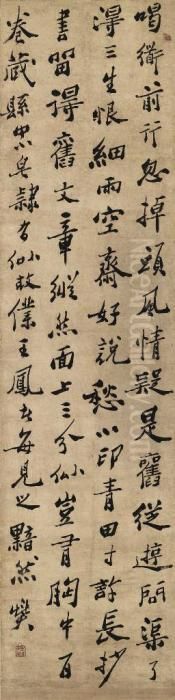 喝衟前行忽掉頭風情疑是舊從遊問渠了
淂三生恨細雨空齋好說愁小印青田寸許長抄
書留得舊文章縱然面上三分似豈有胸中百
卷藏縣中小皂隸有似故僕王鳳者每見之黯然燮